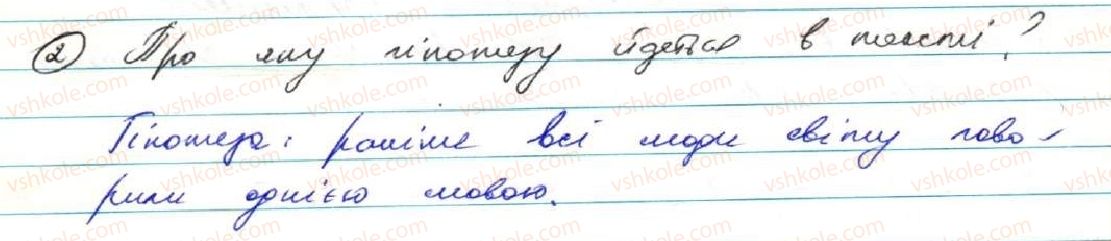 ② Про яку гіпотезу йдеться в тексті?
Гіпотеза: раніше всі люди світу гово-
рили однією мовою.